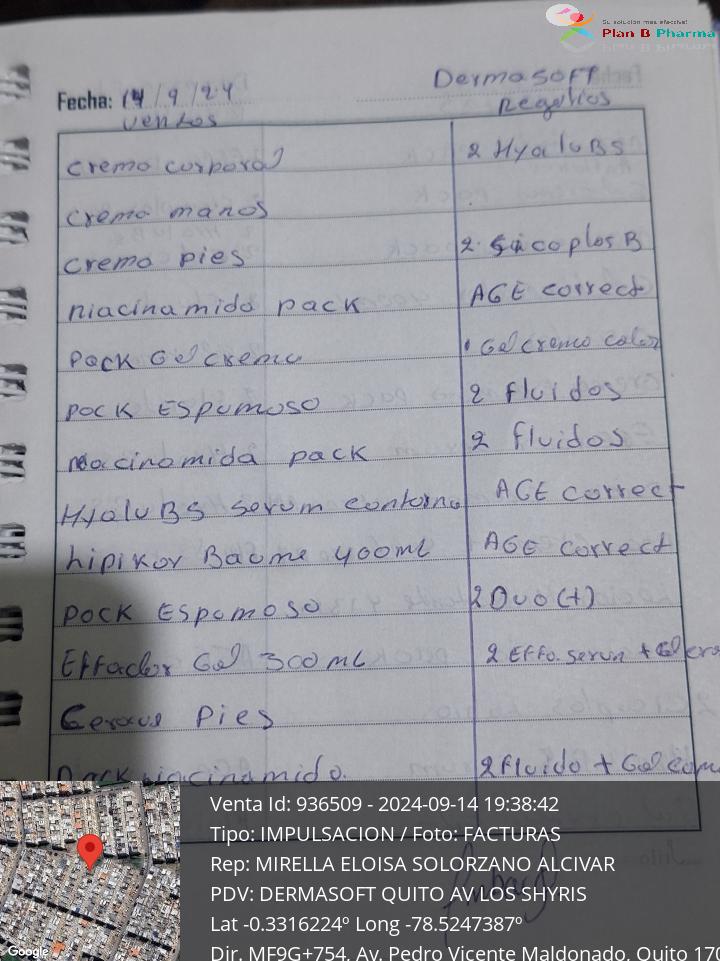 Su solución más efectiva!
Plan B Pharma
Dermasoft
Fecha: 14/9/24
ventas
Regalias
crema corporal 2 Hyalu B5
crema manos
crema pies 2. Sicaplas B
niacinamida pack AGE correct
Pack Gel crema 1 Gel crema color
Pack Espumoso 2 fluidos
niacinamida pack 2 fluidos
Hyalu B5 serum contorno AGE correct
lipikar Baume 400ml AGE correct
Pack Espumoso 2 Duo (+)
Effaclar Gel 300 ML 2 Effa. serum + Gel
Cerave Pies
Pack niacinamida. 2 fluido + Gel
Venta Id: 936509 - 2024-09-14 19:38:42
Tipo: IMPULSACION / Foto: FACTURAS
Rep: MIRELLA ELOISA SOLORZANO ALCIVAR
PDV: DERMASOFT QUITO AV LOS SHYRIS
Lat -0.3316224º Long -78.5247387º
Dir. MF9G+754, Av. Pedro Vicente Maldonado, Quito 170
Google